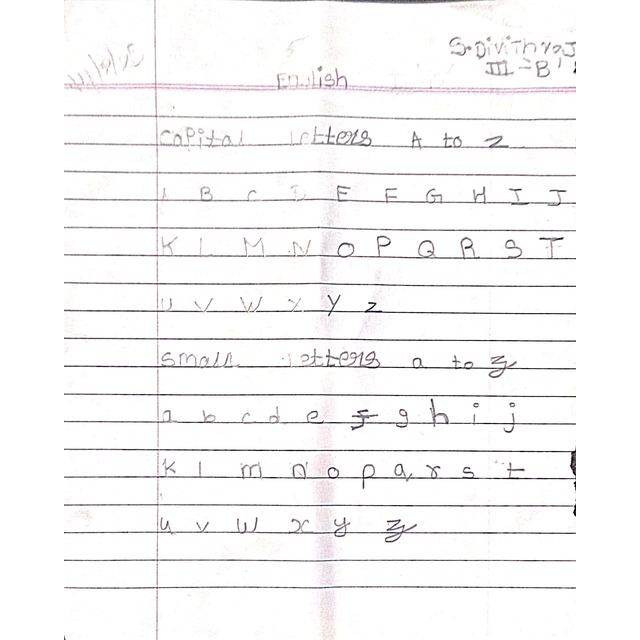 S. Divith raj
III - B
English
Capital letters A to Z
A B C D E F G H I J
K L M N O P Q R S T
U V W X Y Z
Small letters a to z
a b c d e f g h i j
k l m n o p q r s t
u v w x y z